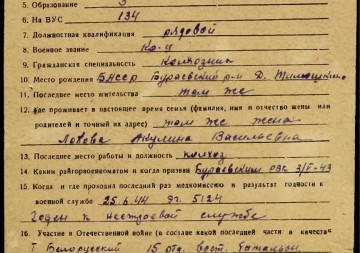 5. Образование 3
6. На ВУС 134
7. Должностная квалификация рядовой
8. Военное звание
9. Гражданская специальность Колхозник
10. Место рождения БАССР Бураевский р-н Д. Тимошкино
11. Последнее место жительства там же
12. Где проживает в настоящее время семья (фамилия, имя и отчество жены или
родителей и точный их адрес) там же жена
Акулина Васильевна
13. Последнее место работы и должность колхоз
14. Каким райгорвоенкоматом и когда призван Бураевским рвк 3/V-43
15. Когда и где проходил последний раз медкомиссию и результат годности к
военной службе 25.6.44 эг. 5124
Годен к нестроевой службе
16. Участие в Отечественной войне (в составе какой последней части и в качестве
1 Белорусский 15 отд. вост. батальон